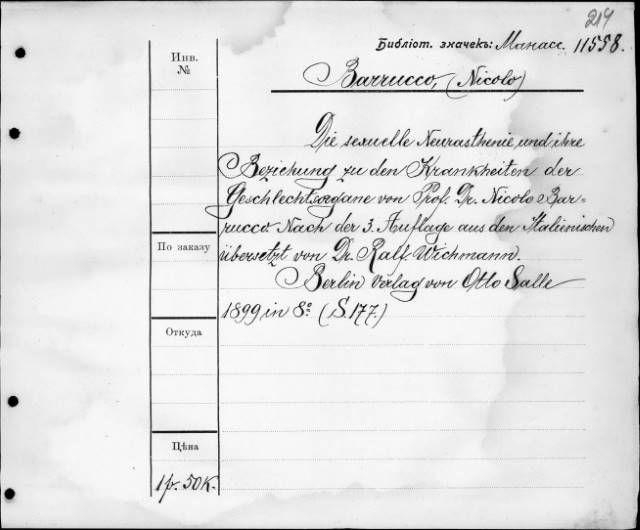 214
Инв.
№
Библіот. значекъ: Манасс. 11558.
Barrucco, (Nicolo)
Die sexuelle Neurasthenie und ihre
Beziehung zu den Krankheiten der
Geschlechtsorgane von Prof. Dr. Nicolo Bar-
rucco. Nach der 3. Auflage aus den Italienischen
По заказу
übersetzt von Dr. Ralf Wichmann.
Berlin Verlag von Otto Salle
1899 in 8° (S. 177.)
Откуда
Цѣна
1р. 50к.